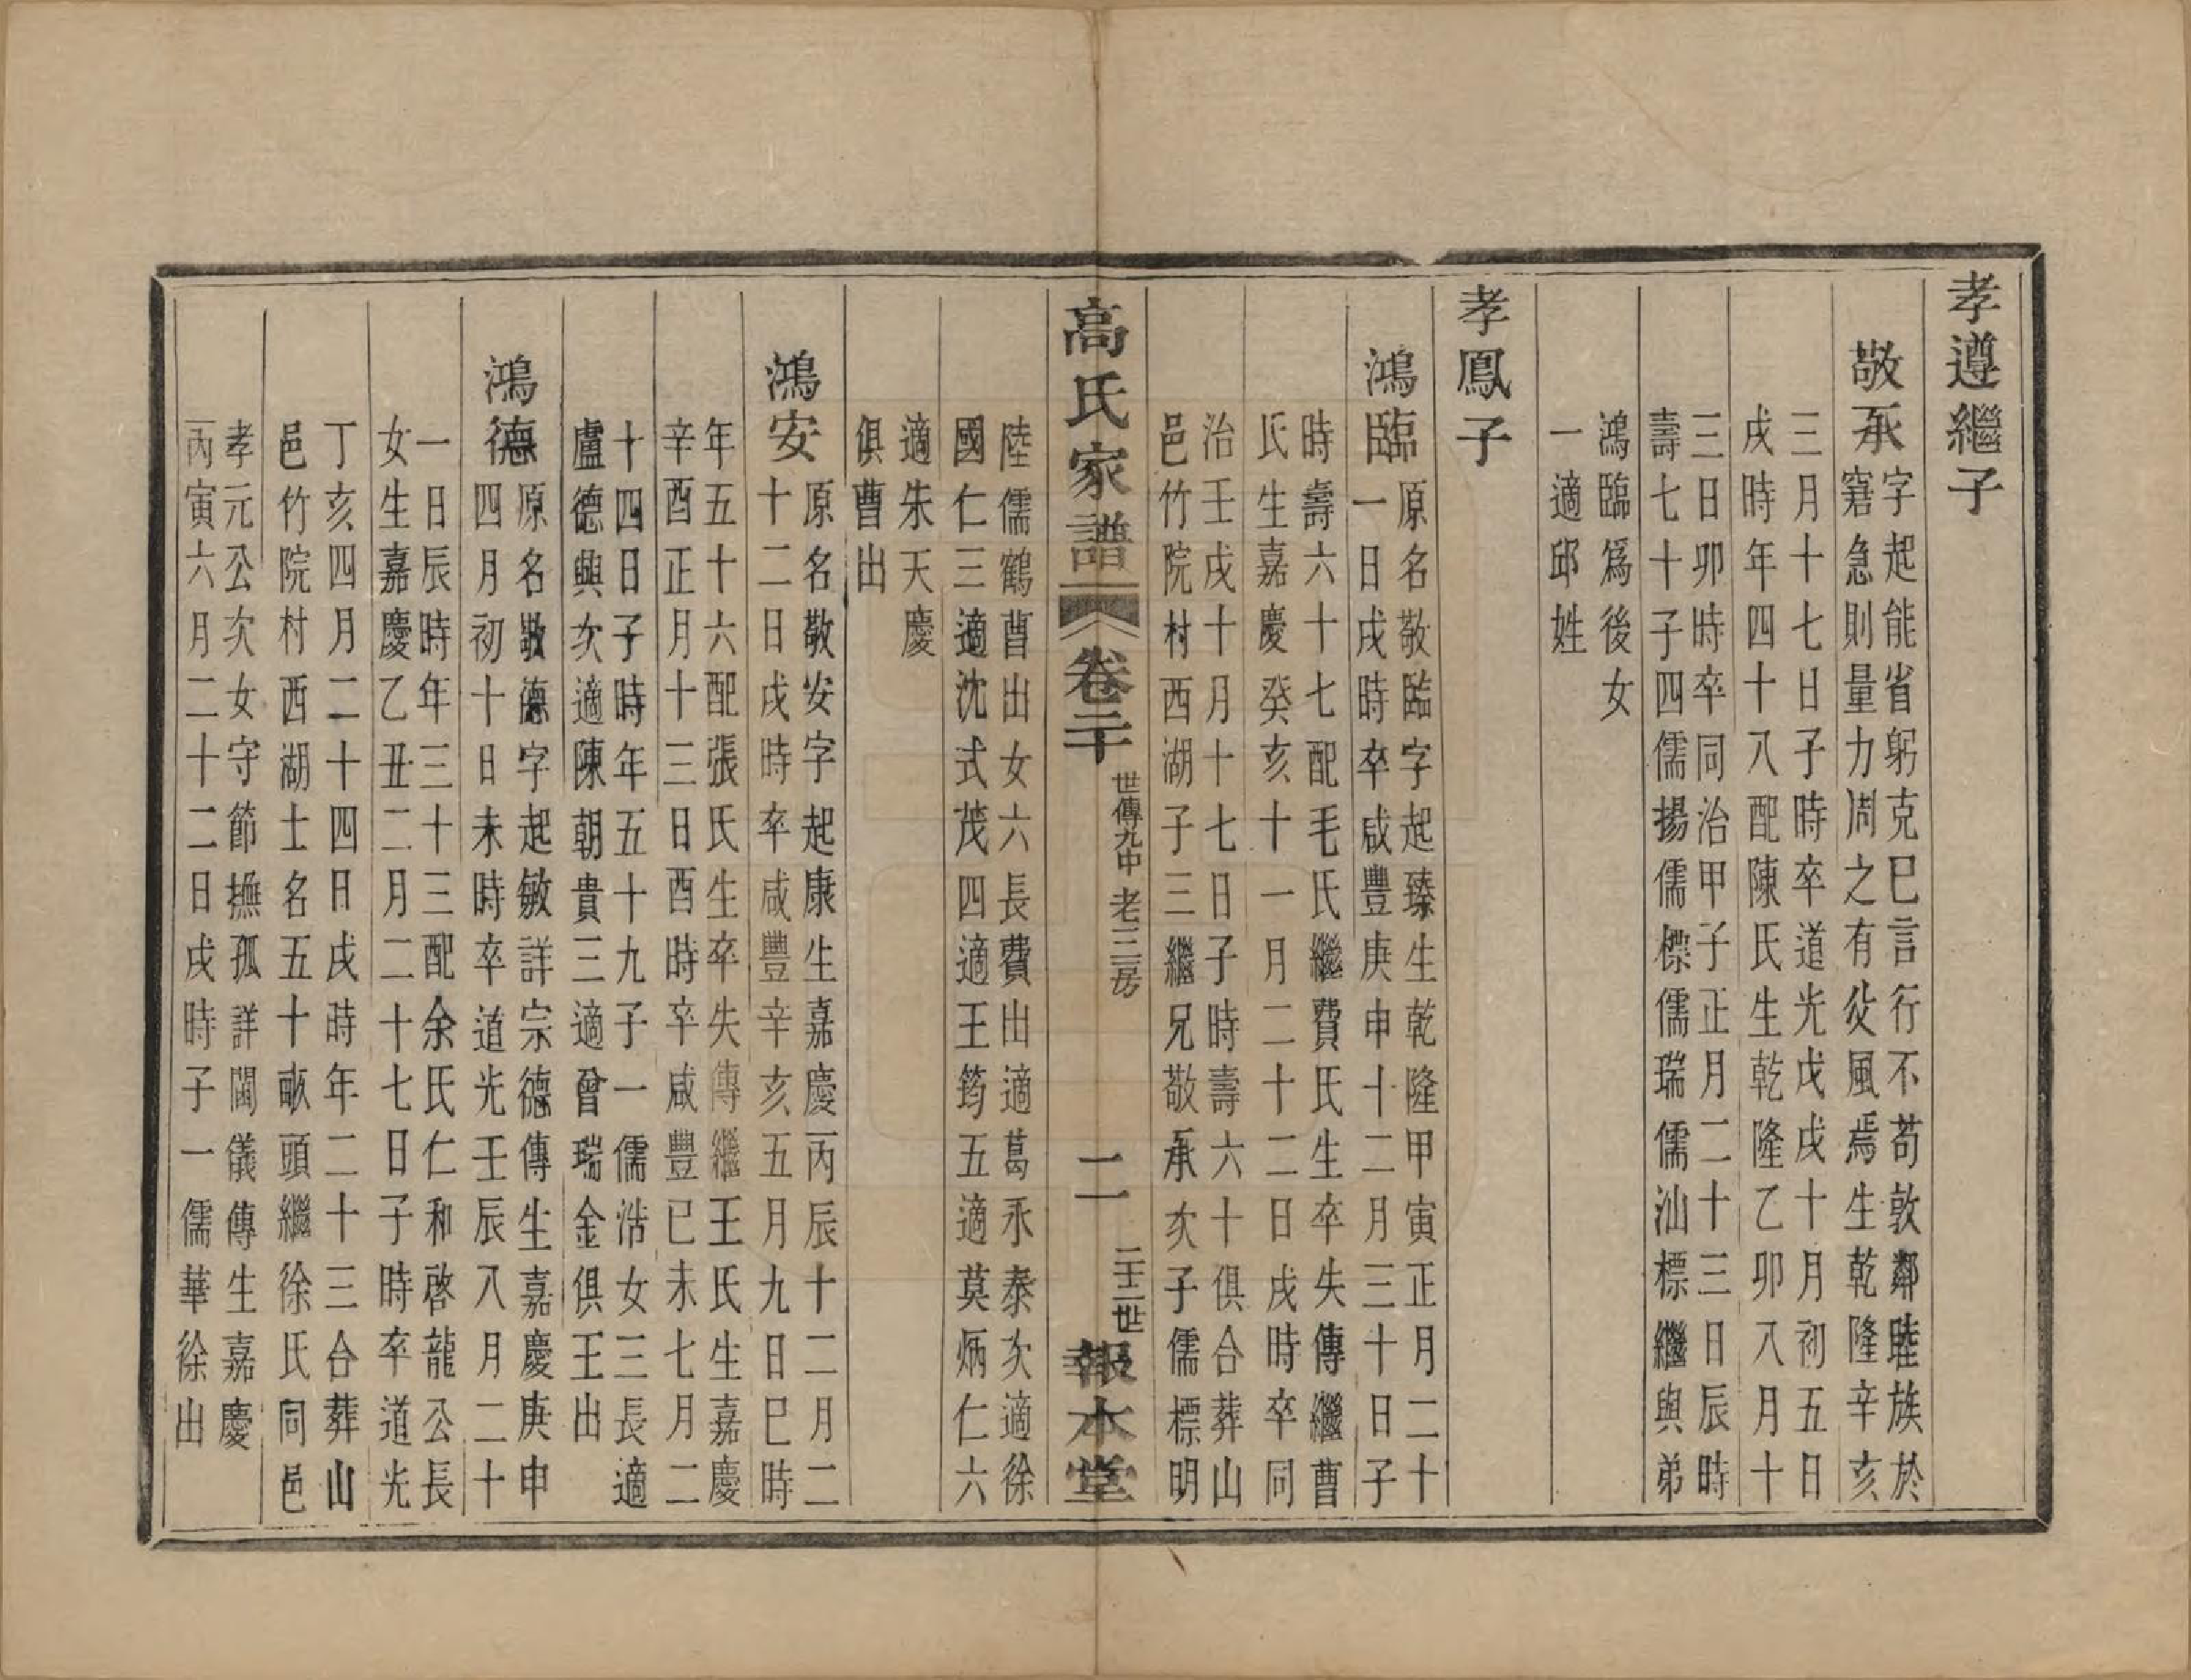 孝遵繼子
敬承
字起能省躬克己言行不苟敦鄰睦族於
窘急則量力周之有攸風焉生乾隆辛亥
三月十七日子時卒道光戊戌十月初五日
戌時年四十八配陳氏生乾隆乙卯八月十
三日卯時卒同治甲子正月二十三日辰時
壽七十子四儒揚儒標儒瑞儒汕標繼與弟
鴻臨爲後女
一適邱姓
孝鳳子
鴻臨
原名敬臨字起臻生乾隆甲寅正月二十
一日戌時卒咸豐庚申十二月三十日子
時壽六十七配毛氏繼費氏生卒失傳繼曹
氏生嘉慶癸亥十一月二十二日戌時卒同
治壬戌十月十七日子時壽六十俱合葬山
邑竹院村西湖子三繼兄敬承次子儒標明
高氏家譜
卷二十
世傳九中 老三房
二
二十二世
報本堂
陸儒鶴曹出女六長費出適葛永泰次適徐
國仁三適沈式茂四適王筠五適莫炳仁六
適朱天慶
俱曹出
鴻安
原名敬安字起康生嘉慶丙辰十二月二
十二日戌時卒咸豐辛亥五月九日巳時
年五十六配張氏生卒失傳繼王氏生嘉慶
辛酉正月十三日酉時卒咸豐已未七月二
十四日子時年五十九子一儒浩女三長適
盧德興次適陳朝貴三適曾瑞金俱王出
鴻德
原名敬德字起敏詳宗德傳生嘉慶庚申
四月初十日未時卒道光壬辰八月二十
一日辰時年三十三配余氏仁和啓龍公長
女生嘉慶乙丑二月二十七日子時卒道光
丁亥四月二十四日戌時年二十三合葬山
邑竹院村西湖士名五十畝頭繼徐氏同邑
孝元公次女守節撫孤詳閫儀傳生嘉慶
丙寅六月二十二日戌時子一儒華徐出